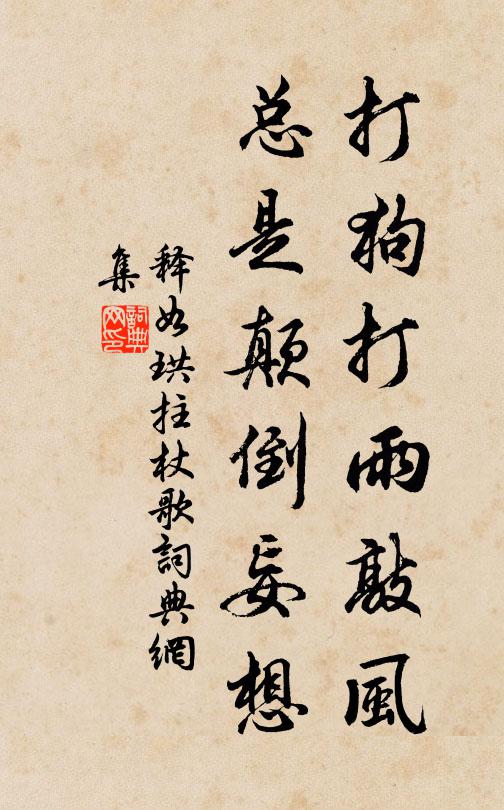 打狗打雨敲风
总是颠倒妄想
释如珙拄杖歌詞典網
集
詞典网印